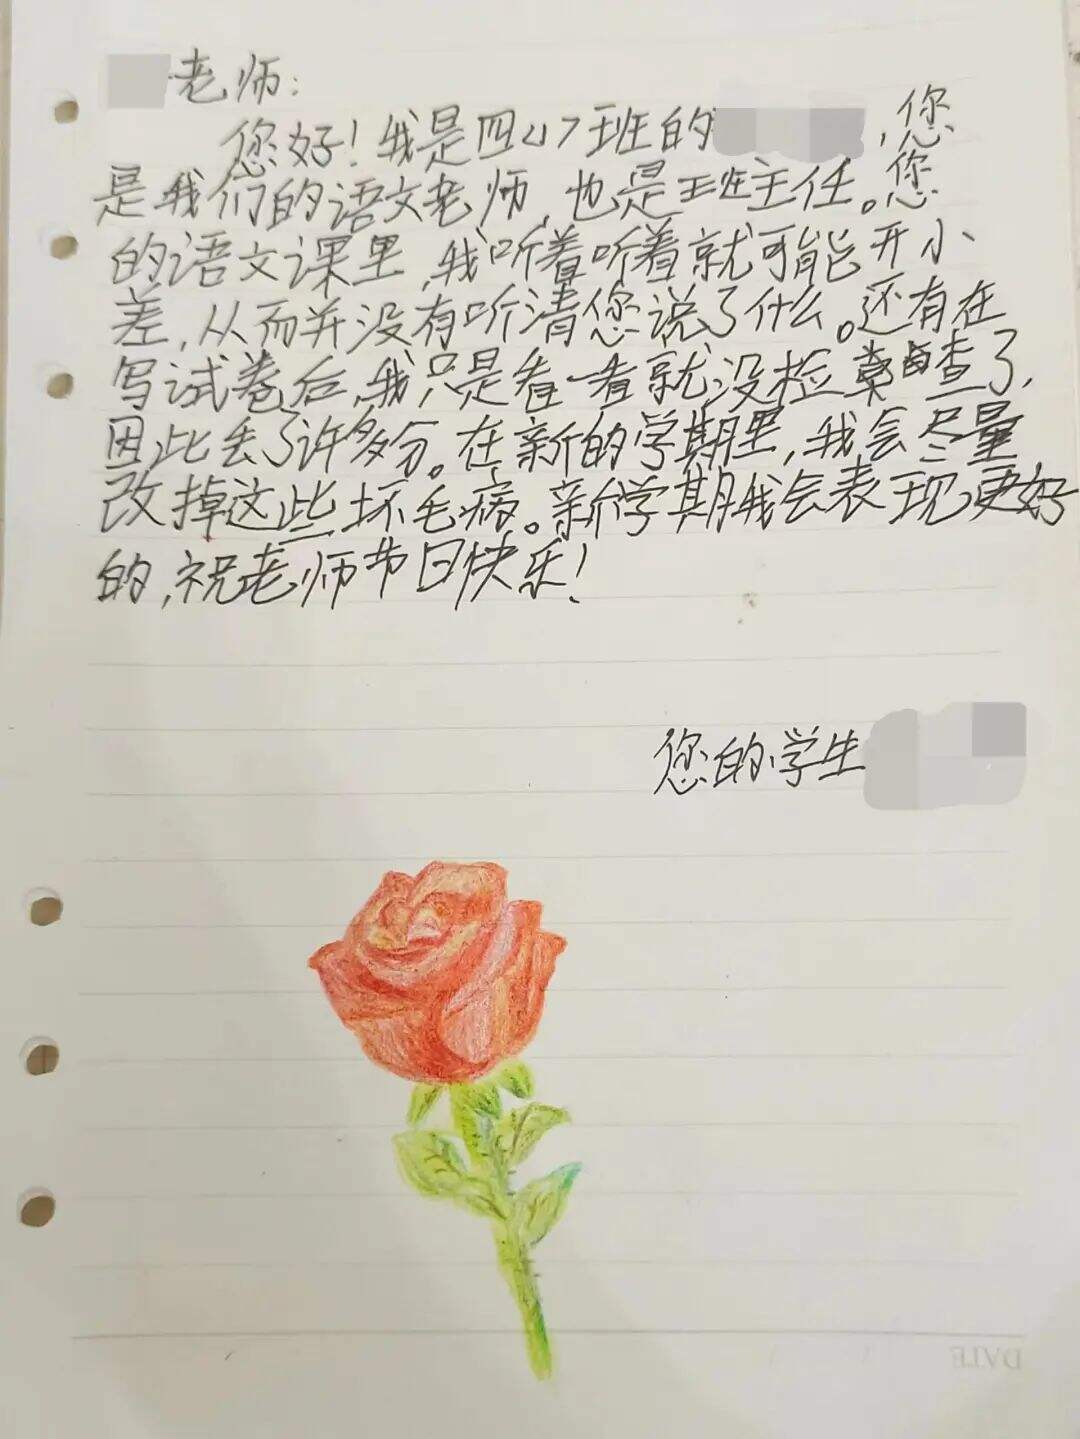 老师:
您好!我是四(1)班的 ,您
是我们的语文老师,也是班主任。您
的语文课里,我听着听着就可能开小
差,从而并没有听清您说了什么。还有在
写试卷后,我只是看一看就没检查了,
因此丢了许多分。在新的学期里,我会尽量
改掉这些坏毛病。新学期我会表现更好
的,祝老师节日快乐!
您的学生
DATE